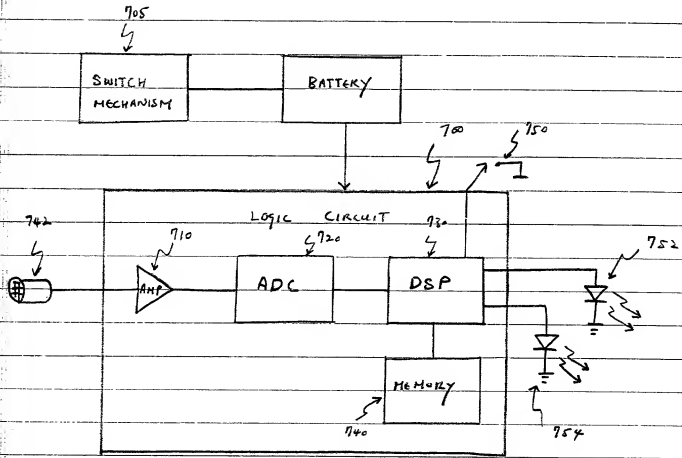 705
SWITCH
MECHANISM
BATTERY
700
750
LOGIC CIRCUIT
742
710
720
730
752
AMP
ADC
DSP
MEMORY
740
754